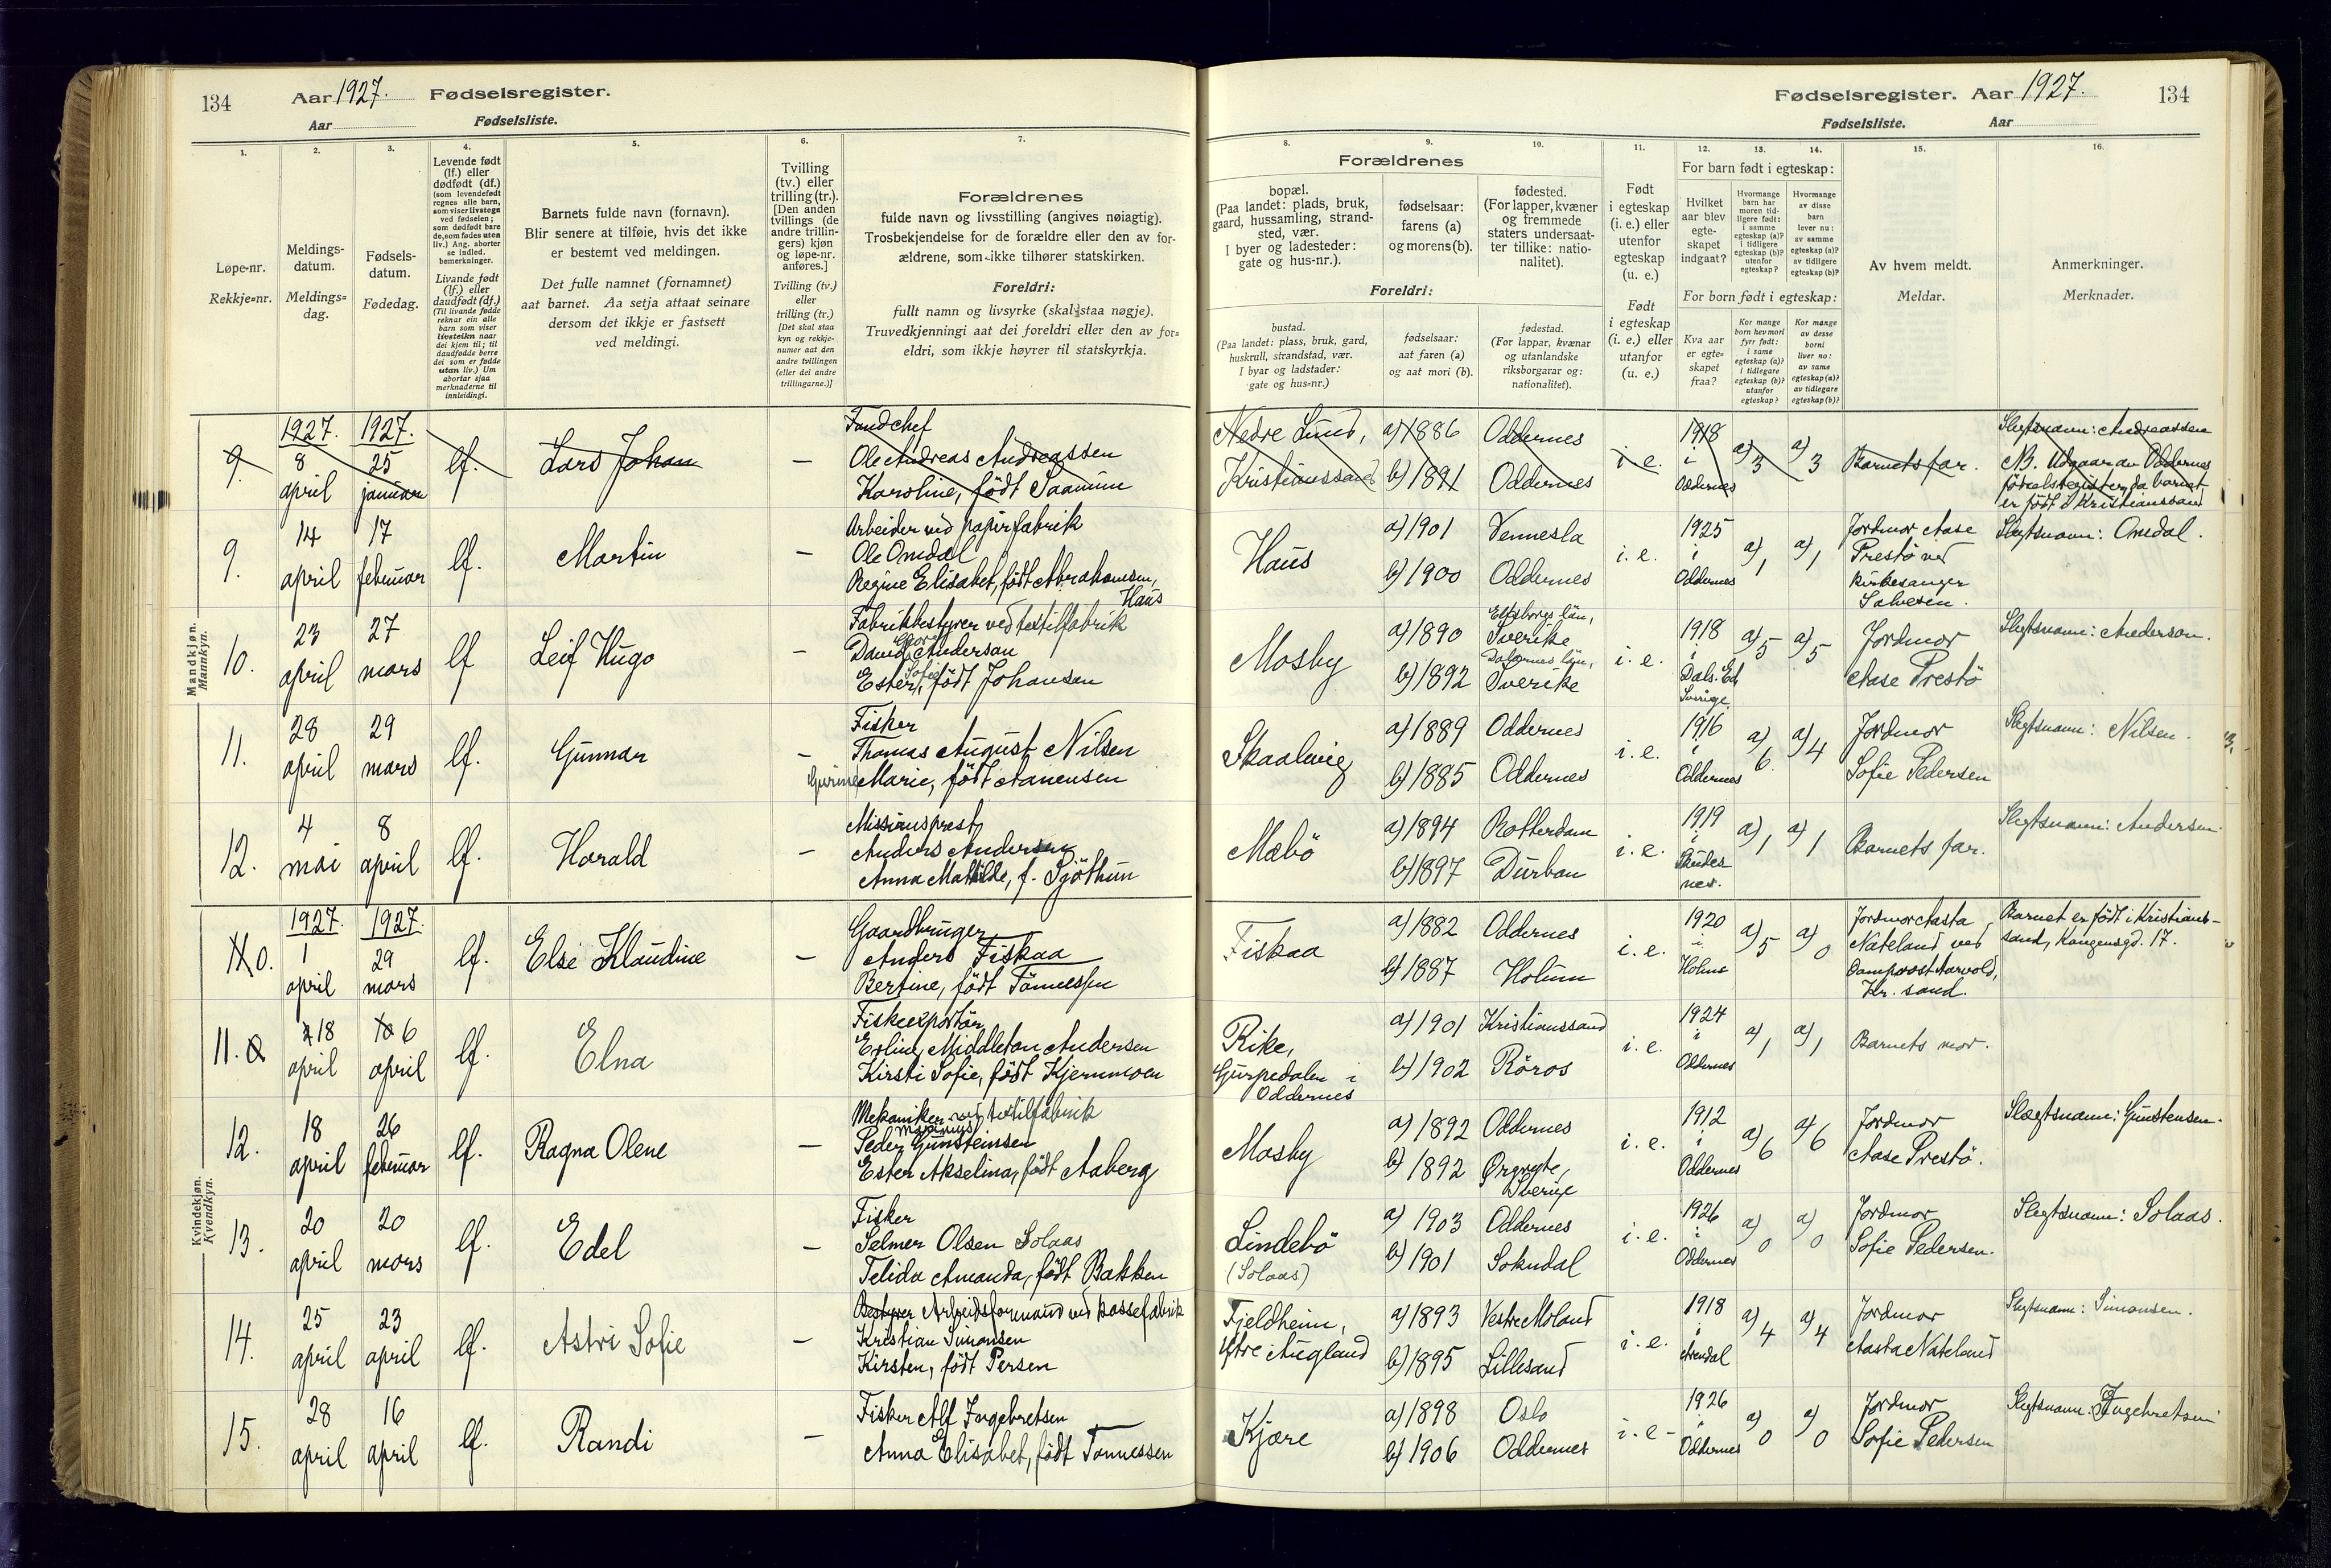 134 Aar 1927. Fødselsregister.
Aar Fødselsliste.
1. 2. 3. 4. 5. 6. 7.
Løpe-nr.
Rekkje=nr.
Meldings-
datum.
Meldings=
dag.
Fødsels-
datum.
Fødedag.
Levende født
(lf.) eller
dødfødt (df.)
(som levendefødt
regnes alle barn,
som viser livstegn
ved fødselen;
som dødfødt bare
de, som fødes uten
liv.) Ang. aborter
se indled.
bemerkninger.
Livande født
(lf.) eller
daudfødt (df.)
(Til livande fødde
reknar ein alle
barn som viser
livsteikn naar
dei kjem til; til
daudfødde berre
dei som er fødde
utan liv.) Um
abortar sjaa
merknaderne til
innleidingi.
Barnets fulde navn (fornavn).
Blir senere at tilføie, hvis det ikke
er bestemt ved meldingen.
Det fulle namnet (fornamnet)
aat barnet. Aa setja attaat seinare
dersom det ikkje er fastsett
ved meldingi.
Tvilling
(tv.) eller
trilling (tr.).
[Den anden
tvillings (de
andre trillin-
gers) kjøn
og løpe-nr.
anføres.]
Tvilling (tv.)
eller
trilling (tr.)
[Det skal staa
kyn og rekkje-
numer aat den
andre tvillingen
(eller dei andre
trillingarne.)]
Forældrenes
fulde navn og livsstilling (angives nøiagtig).
Trosbekjendelse for de forældre eller den av for-
ældrene, som ikke tilhører statskirken.
Foreldri:
fullt namn og livsyrke (skal staa nøgje).
Truvedkjenningi aat dei foreldri eller den av for=
eldri, som ikkje høyrer til statskyrkja.
Mandkjøn.
Mannkyn.
1927. 1927.
9. 8 april 25 januar lf. Lars Johan —
Fondchef
Ole Andreas Andreassen
Karoline, født Saanum
9. 14 april 17 februar lf. Martin —
Arbeider ved papirfabrik
Ole Omdal
Regine Elisabet, født Abrahamsen,
Haus
10. 23 april 27 mars lf Leif Hugo —
Fabrikbestyrer ved textilfabrik
Georg
David Anderson
Sofie
Ester, født Johanson
11. 28 april 29 mars lf. Gunnar —
Fisker
Thomas August Nilsen
Gurine Marie, født Aanensen
12. 4 mai 8 april lf. Harald —
Missionsprest
Anders Andersen
Anna Mathilde, f. Sjöthun
Kvindekjøn.
Kvendkyn.
1927. 1927.
10. 1 april 29 mars lf. Else Klaudine —
Gaardbruger
Anders Fiskaa
Bertine, født Tönnessen
11. 18 april 6 april lf. Elna
Fiskeexportör
Erling Middleton Andersen
Kirsti Sofie, født Kjernmoen
12. 18 april 26 februar lf. Ragna Olene —
Mekaniker ved textilfabrik
Marinius
Peder Gunsteinsen
Ester Akselina, født Aaberg
13. 20 april 20 mars lf. Edel —
Fisker
Selmer Olsen Solaas
Telida Amanda, født Bakken
14. 25 april 23 april lf. Astri Sofie —
Bestyrer Arbeidsformand ved kassefabrik
Kristian Simonsen
Kirsten, født Persen
15. 28 april 16 april lf. Randi —
Fisker Alf Ingebretsen
Anna Elisabet, født Tønnessen
Fødselsregister. Aar 1927. 134
Fødselsliste. Aar
8. 9. 10. 11. 12. 13. 14. 15. 16.
Forældrenes
bopæl.
(Paa landet: plads, bruk,
gaard, hussamling, strand-
sted, vær.
I byer og ladesteder:
gate og hus-nr.).
fødselsaar:
farens (a)
og morens (b).
fødested.
(For lapper, kvæner
og fremmede
staters undersaat-
ter tillike: natio-
nalitet).
Foreldri:
bustad.
(Paa landet: plass, bruk, gard,
huskrull, strandstad, vær.
I byar og ladstader:
gate og hus-nr.)
fødselsaar:
aat faren (a)
og aat mori (b).
fødestad.
(For lappar, kvænar
og utanlandske
riksborgarar og:
nationalitet).
Født
i egteskap
(i. e.) eller
utenfor
egteskap
(u. e.)
Født
i egteskap
(i. e.) eller
utanfor
(u. e.)
For barn født i egteskap:
Hvilket
aar blev
egte-
skapet
indgaat?
Hvormange
barn har
moren tid-
ligere født:
i samme
egteskap (a)?
i tidligere
egteskap (b)?
utenfor
egteskap?
Hvormange
av disse
barn
lever nu:
av samme
egteskap (a)?
av tidligere
egteskap (b)?
For born født i egteskap:
Kva aar
er egte=
skapet
fraa?
Kor mange
born hev mori
fyrr født:
i same
egteskap (a)?
i tidlegare
egteskap (b)?
utanfor
egteskap?
Kor mange
av desse
borni
liver no:
av same
egteskap (a)?
av tidlegare
egteskap (b)?
Av hvem meldt.
Meldar.
Anmerkninger.
Merknader.
Nedre Lund,
Kristianssand
a) 1886 Oddernes
b) 1891 Oddernes
i. e. 1918 i Oddernes a) 3 a) 3 Barnets far.
Slegtsnavn: Andreassen
NB. Udgaar av Oddernes
fødselsregister, da barnet
er født i Kristianssand
Haus
a) 1901 Vennesla
b) 1900 Oddernes
i. e. 1925 i Oddernes a) 1 a) 1
Jordmor Aase
Prestö ved
kirkesanger
Salvesen.
Slegtsnavn: Omdal.
Mosby
a) 1890 Elfsborgs län, Sverike
b) 1892 Dalarnes län, Sverike
i. e. 1918 i Dals-Ed, Sverige a) 5 a) 5
Jordmor
Aase Prestö
Slegtsnavn: Anderson.
Skaalevig
a) 1889 Oddernes
b) 1885 Oddernes
i. e. 1916 i Oddernes a) 6 a) 4
Jordmor
Sofie Pedersen
Slegtsnavn: Nilsen.
Mæbö
a) 1894 Rotterdam
b) 1897 Durban
i. e. 1919 i Skudesnes. a) 1 a) 1 Barnets far.
Slegtsnavn: Andersen.
Fiskaa
a) 1882 Oddernes
b) 1887 Holum
i. e. 1920 i Holum a) 5 a) 0
Jordmor Aasta
Nateland ved
Kr. sand.
Barnet er født i Kristians-
sand, Kongensgd. 17.
Rike,
Gurpedalen i
Oddernes
a) 1901 Kristianssand
b) 1902 Röros
i. e. 1924 i Oddernes a) 1 a) 1 Barnets mor.
Mosby
a) 1892 Oddernes
b) 1892 Ørgryte, Sverige
i. e. 1912 i Oddernes a) 6 a) 6
Jordmor
Aase Prestö.
Slægtsnavn: Gunstensen.
Lindebö
(Solaas)
a) 1903 Oddernes
b) 1901 Sokndal
i. e. 1926 i Oddernes a) 0 a) 0
Jordmor
Sofie Pedersen.
Slegtsnavn: Solaas.
Fjeldheim,
Ytre Augland
a) 1893 Vestre Moland
b) 1895 Lillesand
i. e. 1918 i Arendal a) 4 a) 4
Jordmor
Aasta Nateland
Slegtsnavn: Simonsen.
Kjære
a) 1898 Oslo
b) 1906 Oddernes
i. e. 1926 i Oddernes a) 0 a) 0
Jordmor
Sofie Pedersen
Slegtsnavn: Ingebretsen